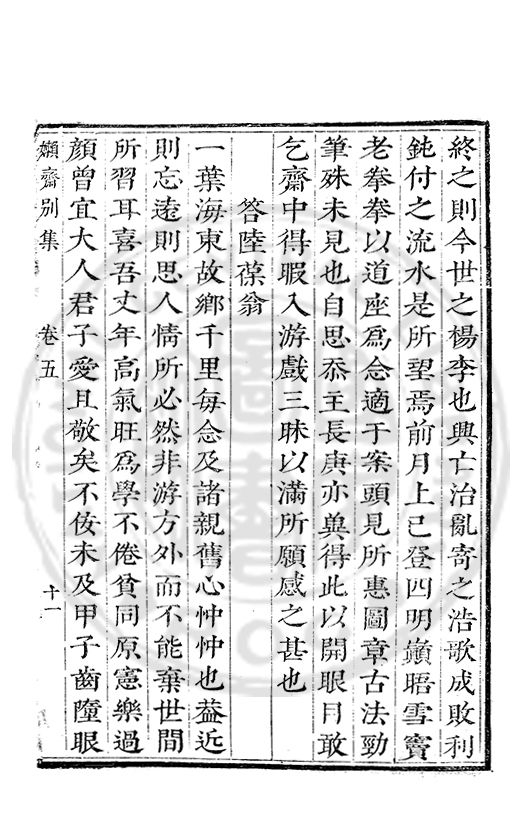 終之則今世之楊李也興亡治亂寄之浩歌成敗利
鈍付之流水是所望焉前月上已登四明巔晤雪竇
老拳拳以道座爲念適于案頭見所惠圖章古法勁
筆殊未見也自思忝主長庚亦兾得此以開眼目敢
乞齋中得暇入游戲三昧以滿所願感之甚也
答陸葆翁
一葉海東故鄉千里每念及諸親舊心忡忡也葢近
則忘遠則思人情所必然非游方外而不能棄世間
所習耳喜吾丈年高氣旺爲學不倦貧同原憲樂過
顔曾宜大人君子愛且敬矣不佞未及甲子齒墮眼
嬾齋別集
卷五
十一